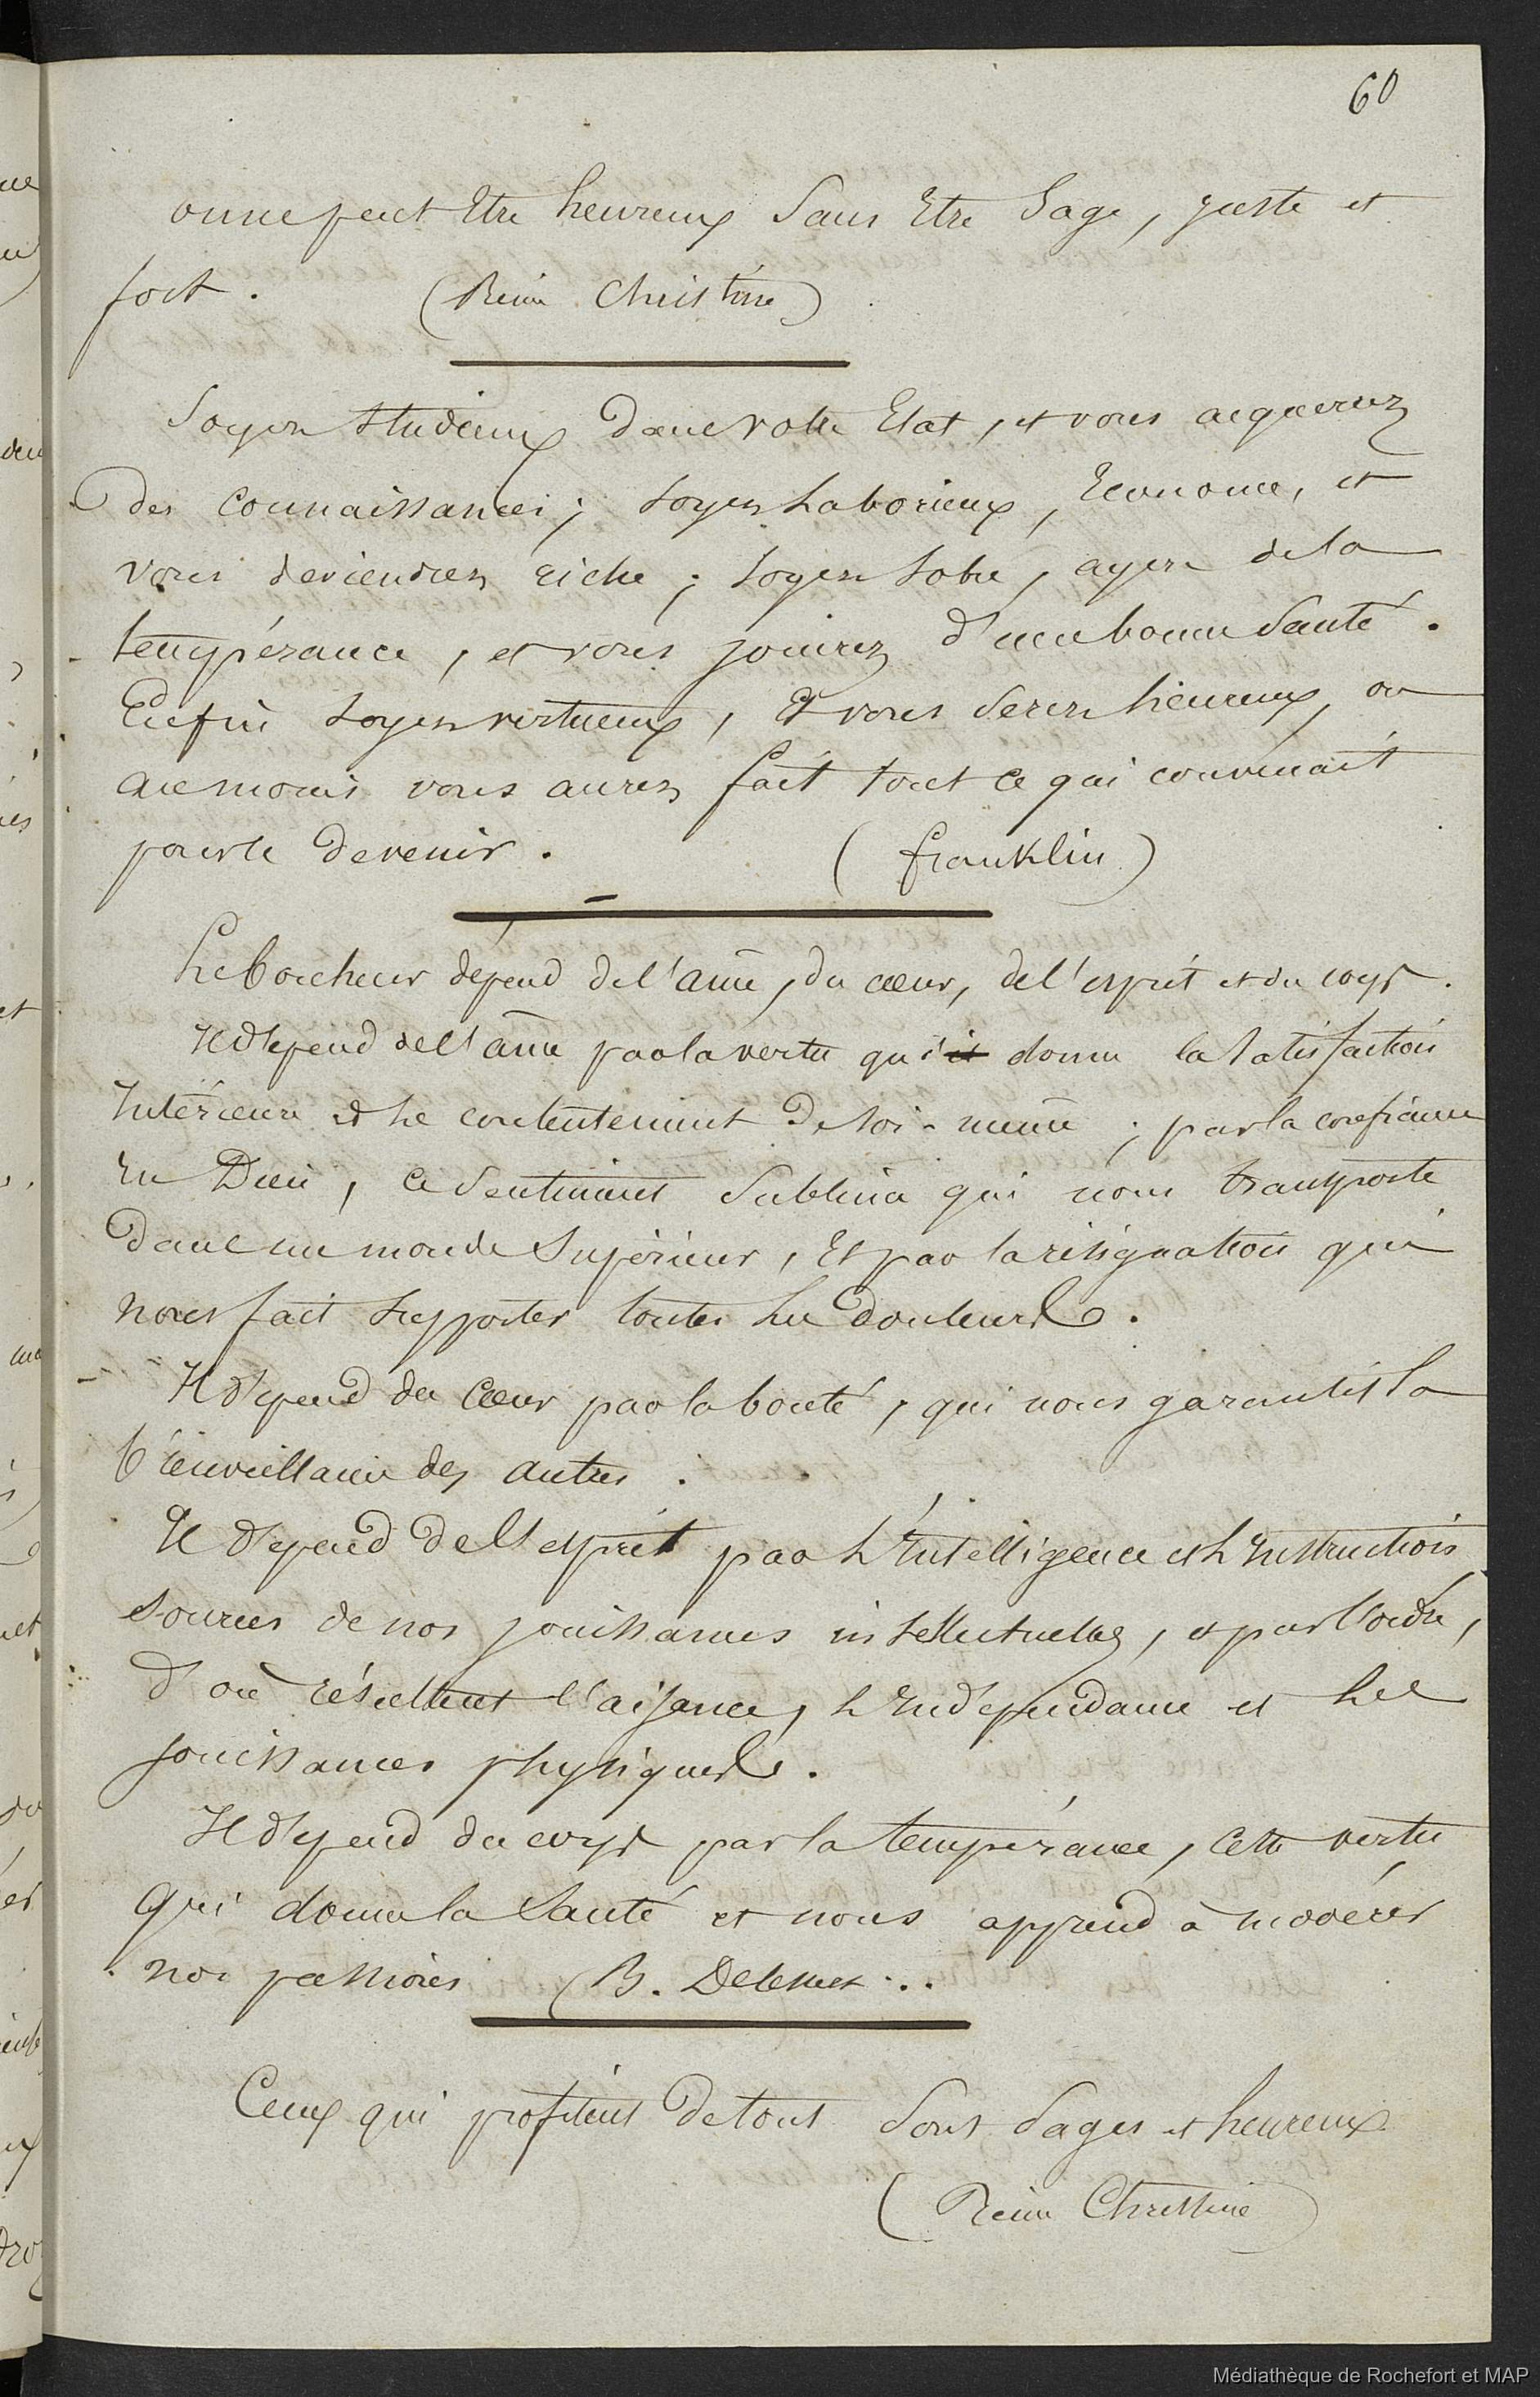 60
on ne peut Etre heureux Sans Etre Sage, juste et
fort. (Reine Christine)
Soyez Studieux Dans votre Etat, et vous acquerrez
Des connaissances; Soyez Laborieux, Econome, et
vous deviendrez riche; Soyez Sobre, ayez de la
tempérance, et vous jouirez d'une bonne Santé.
Enfin Soyez vertueux, Et vous Serez heureux, ou
au moins vous aurez fait tout ce qui convenait
pour le Devenir. (franklin)
Le bonheur dépend de l'âme, du cœur, de l'esprit et du corps.
Il dépend de l'âme par la vertu qui donne la Satisfaction
Intérieure et Le contentement De Soi-même; par la confiance
En Dieu, ce Sentiment Sublime qui nous transporte
Dans un monde Supérieur, Et par la résignation qui
nous fait Supporter toutes Les Douleurs.
Il dépend du Cœur par la bonté, qui nous garantit la
bienveillance des autres.
Il dépend De l'esprit par L'Intelligence et L'Instruction
Sources de nos jouissances intellectuelles, et par l'ordre,
d'où résultent l'aisance, L'Indépendance et Les
jouissances physiques.
Il dépend du corps par la tempérance, cette vertu
qui donne la Santé et nous apprend à modérer
nos passions (B. Delessert..
Ceux qui profitent De tout Sont Sages et heureux
(Reine Christine)
Médiathèque de Rochefort et MAP